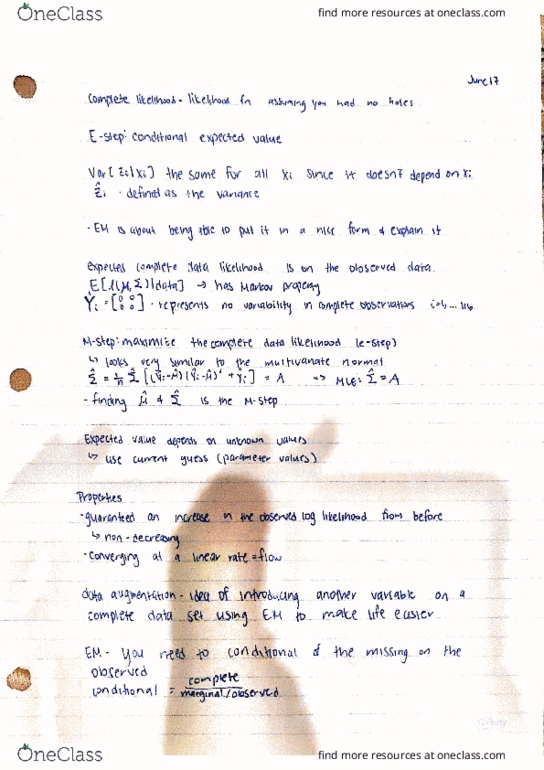 OneClass
find more resources at oneclass.com
June 17
Complete likelihood - likelihood fn assuming you had no holes
E-step: conditional expected value
Var[Zi|xi] the same for all xi since it doesn't depend on xi
ẑi · defined as the variance
· EM is about being able to put it in a nice form & explain it
expected complete data likelihood is on the observed data.
E[l(μ,Σ)|data] → has Markov property
= [0 0; 0 0] · represents no variability in complete observations
M-step: maximize the complete data likelihood (e-step)
↳ looks very similar to the multivariate normal
= A ⇒ MLE: Σ̂ = A
- finding μ̂ & Σ̂ is the M-step
Expected value depends on unknown values
↳ use current guess (parameter values)
Properties
· guaranteed an increase in the observed log likelihood from before
↳ non-decreasing
· converging at a linear rate = flow
data augmentation - idea of introducing another variable on a
complete data set using EM to make life easier
EM - you need to conditional of the missing on the
observed
conditional = complete / marginal/observed
OneClass
find more resources at oneclass.com